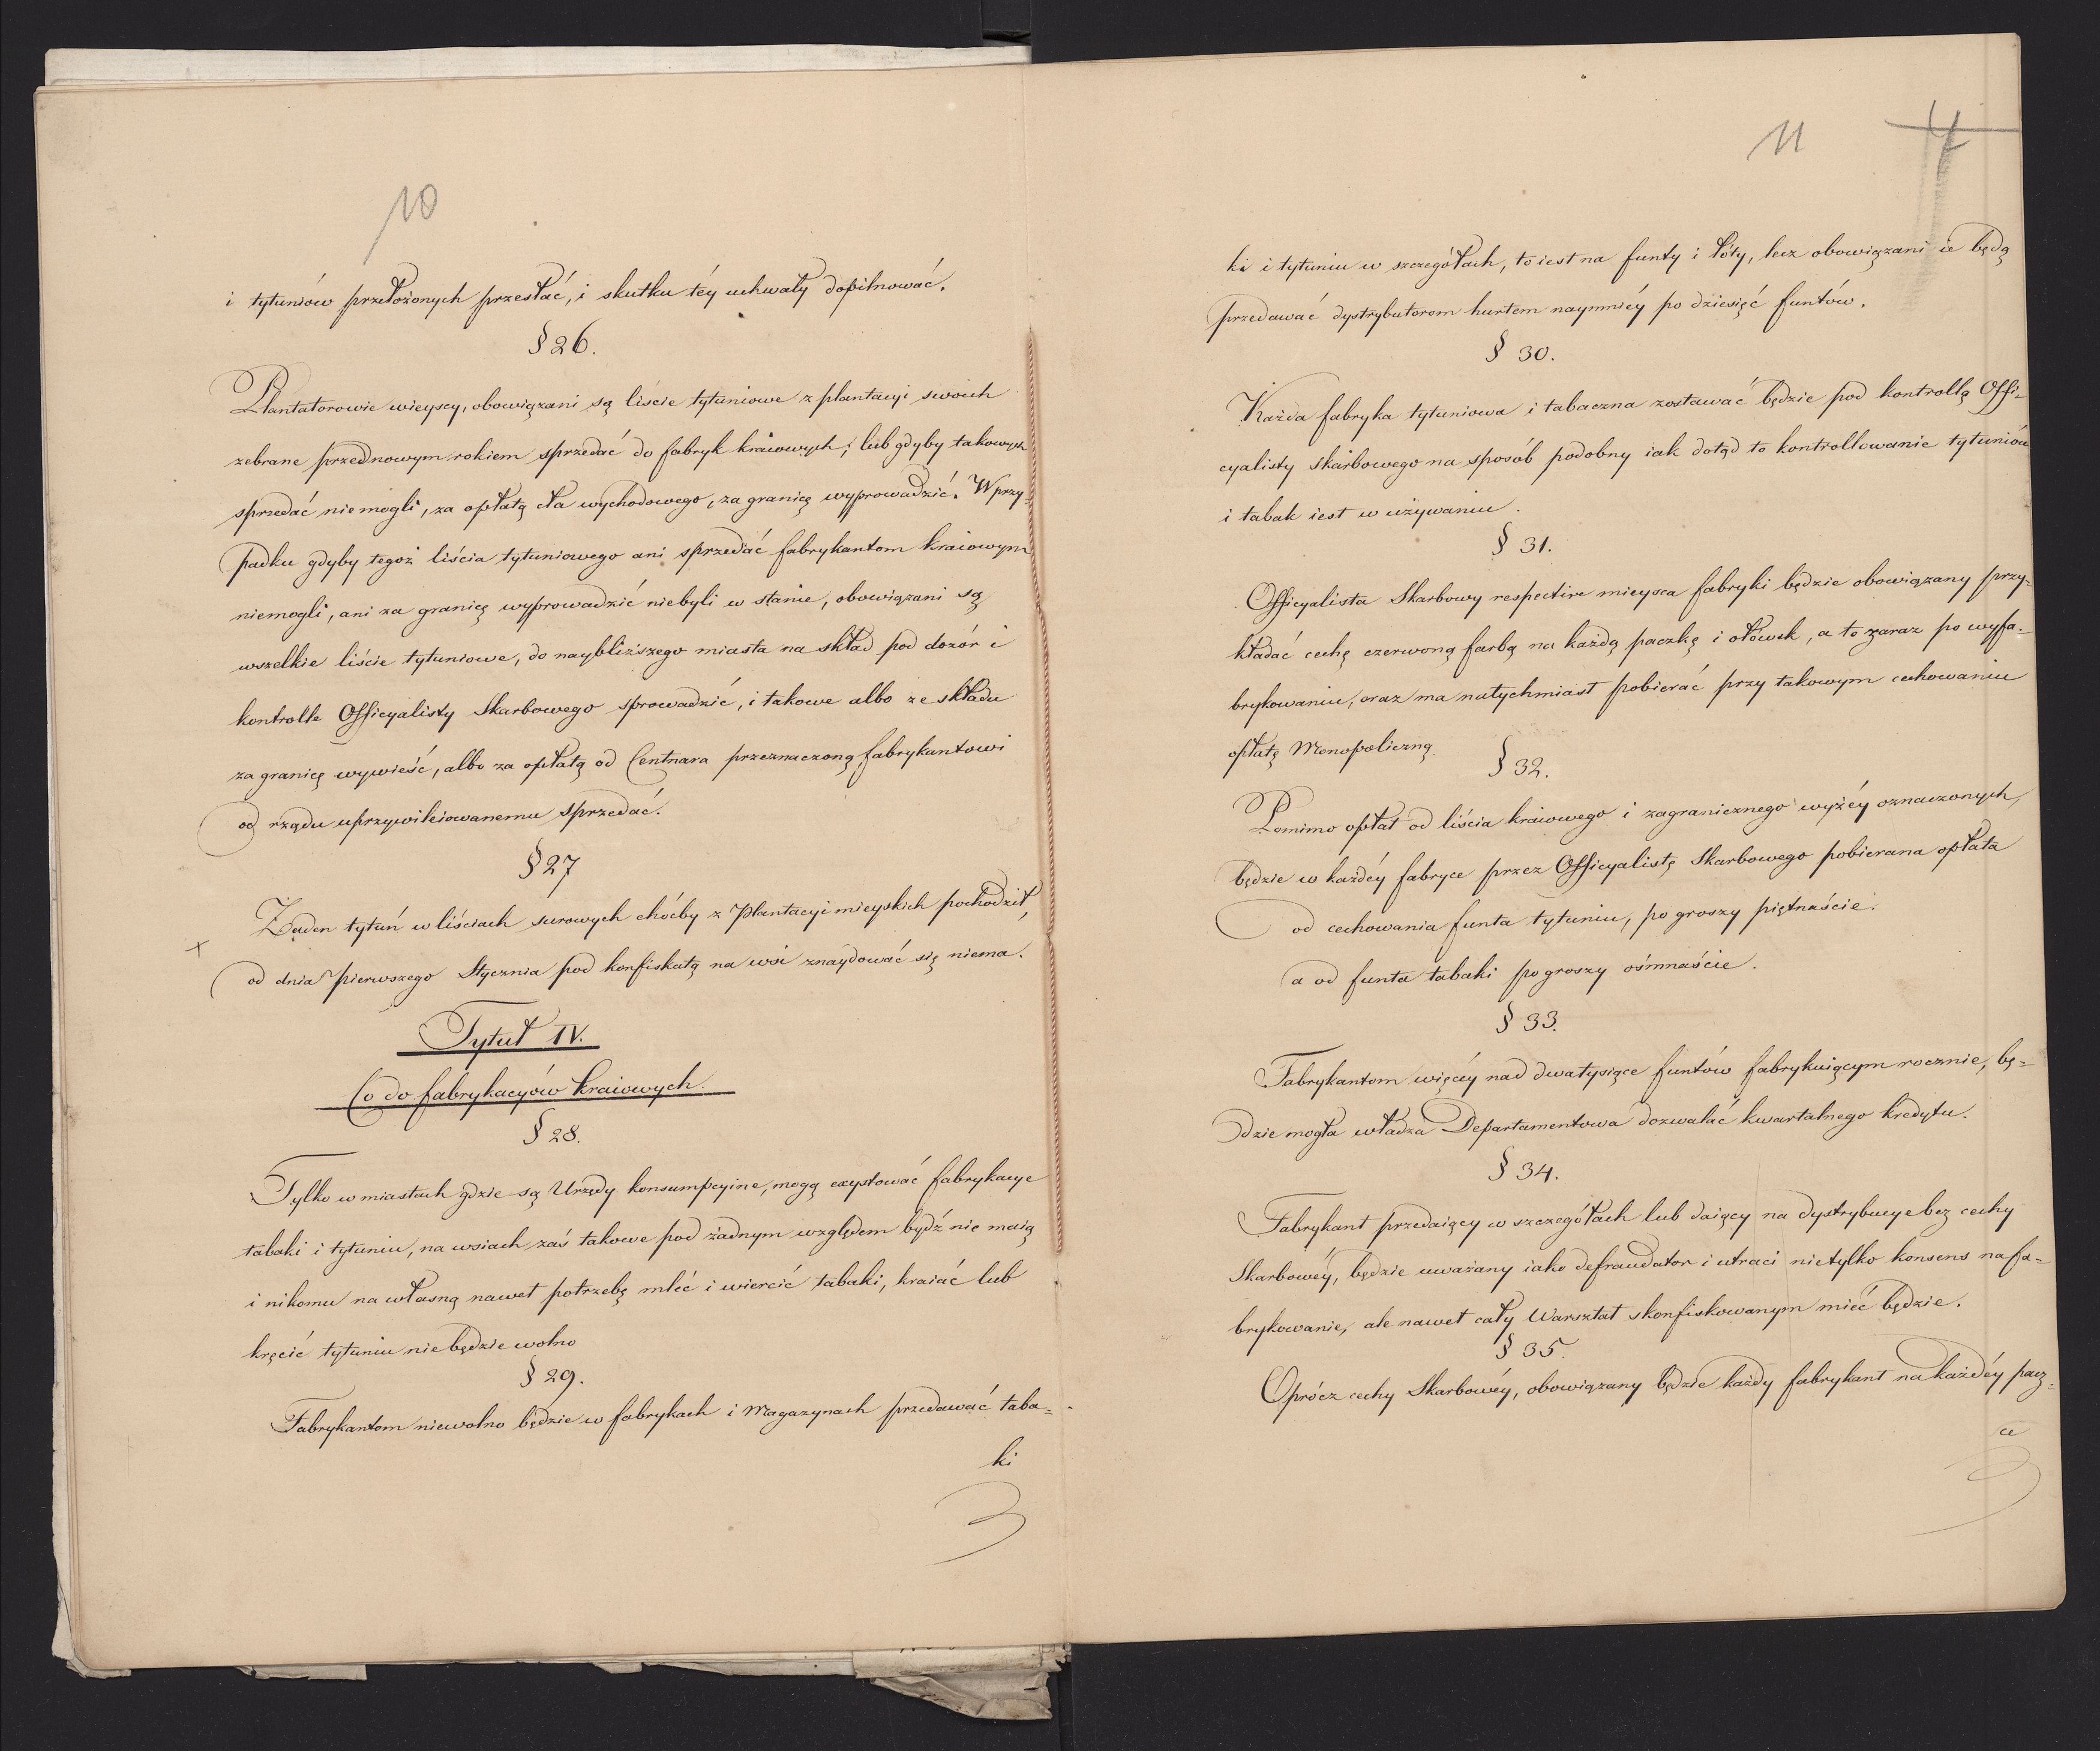 10
i tytuniów przełożonych przesłać, i skutku téy uchwały dopilnować.
§ 26.
Plantatorowie wieyscy, obowiązani są liście tytuniowe z plantacyi swoich
zebrane przed nowym rokiem sprzedać do fabryk kraiowych; lub gdyby takowych
sprzedać nie mogli, za opłatą cła wychodowego, za granicę wyprowadzić. W przy-
padku gdyby tegoż liścia tytuniowego ani sprzedać fabrykantom kraiowym
niemogli, ani za granicę wyprowadzić niebyli w stanie, obowiązani są
wszelkie liście tytuniowe, do naybliższego miasta na skład pod dozór i
kontrolle Officyalisty Skarbowego sprowadzić, i takowe albo ze składu
za granicę wywieść, albo za opłatą od Centnara przeznaczoną fabrykantowi
od rządu uprzywileiowanemu sprzedać.
§ 27
Żaden tytuń w liściach surowych choćby z Plantacyi mieyskich pochodził,
x
od dnia pierwszego Stycznia pod konfiskatą na wsi znaydować się niema.
Tytuł IV.
Co do fabrykacyów kraiowych.
§ 28.
Tylko w miastach gdzie są Urzędy konsumpcyine, mogą exystować fabrykacye
tabaki i tytuniu, na wsiach zaś takowe pod żadnym względem bydź nie maią
i nikomu na własną nawet potrzebę mleć i wiercić tabaki, kraiać lub
kręcić tytuniu nie będzie wolno
§ 29.
Fabrykantom niewolno będzie w fabrykach i Magazynach przedawać taba=
ki
11
ki i tytuniu w szczegółach, to iest na funty i łóty, lecz obowiązani ie będą
przedawać dystrybutorom hurtem naymniéy po dziesięć funtów.
§ 30.
Każda fabryka tytuniowa i tabaczna zostawać będzie pod kontrollą Offi-
cyalisty skarbowego na sposób podobny iak dotąd to kontrollowanie tytuniów
i tabak iest w używaniu.
§ 31.
Officyalista Skarbowy respective mieysca fabryki będzie obowiązany przy-
kładać cechę czerwoną farbą na każdą paczkę i ołówek, a to zaraz po wyfa-
brykowaniu, oraz ma natychmiast pobierać przy takowym cechowaniu
opłatę Monopoliczną.
§ 32.
Pomimo opłat od liścia kraiowego i zagranicznego wyżéy oznaczonych,
będzie w każdéy fabryce przez Officyalistę Skarbowego pobierana opłata
od cechowania funta tytuniu, po groszy piętnaście.
a od funta tabaki po groszy ośmnaście.
§ 33.
Fabrykantom więcéy nad dwa tysiące funtów fabrykuiącym rocznie, bę=
dzie mogła władza Departamentowa dozwalać kwartalnego kredytu.
§ 34.
Fabrykant przedaiący w szczegółach lub daiący na dystrybucye bez cechy
Skarbowéy, będzie uważany iako defraudator i utraci nietylko konsens na fa=
brykowanie, ale nawet cały Warsztat skonfiskowanym mieć będzie.
§ 35.
Oprócz cechy Skarbowéy, obowiązany będzie każdy fabrykant na każdéy pacz=
ce